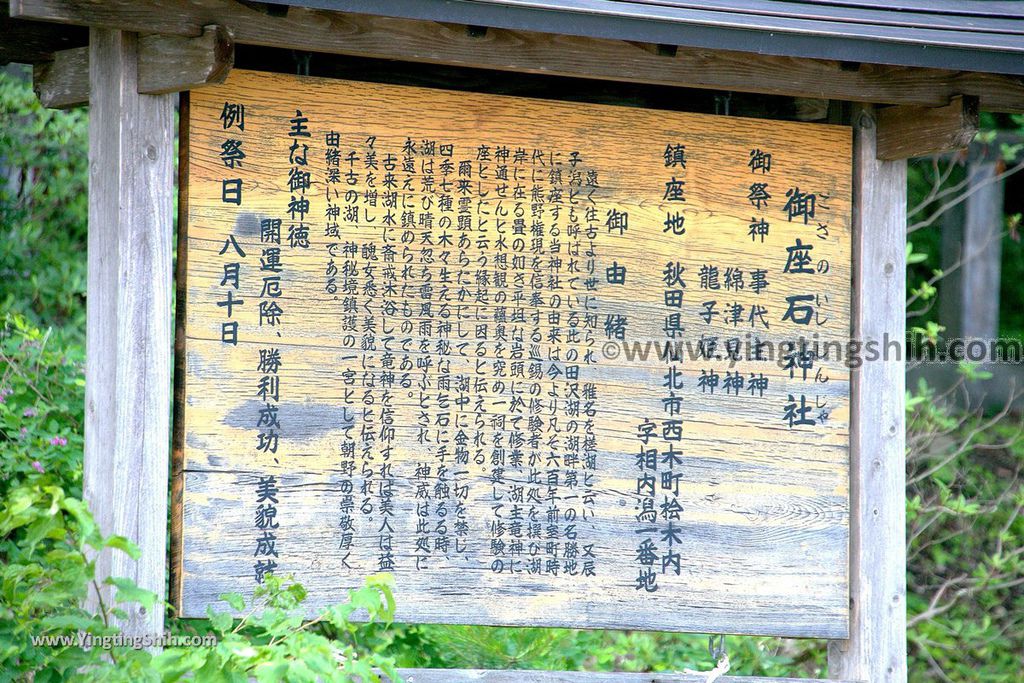 御座石神社
ござのいしじんじゃ
御祭神 事代主神
綿津見神
龍子姫神
鎮座地 秋田県仙北市西木町桧木内
字相内潟一番地
御由緒
遠く往古より世に知られ、雅名を槎湖と云い、又辰
子潟とも呼ばれている此の田沢湖の湖畔第一の名勝地
に鎮座する当神社の由来は今より凡そ六百年前室町時
代に熊野権現を信奉する巡錫の修験者が此処を撰び湖
岸に在る畳の如き平坦な岩頭に於て修業、湖主竜神に
神通せんと水想観の蘊奥を究め一祠を創建して修験の
座としたと云う縁起に因ると伝えられる。
爾来霊顕あらたかにして、湖中に金物一切を禁じ、
四季七種の木々生える神秘は雨乞石に手を触るる時、
湖は荒び晴天忽ち雷風雨を呼ぶとされ、神威は此処に
永遠えに鎮められたものである。
古来湖水に斎戒沐浴して竜神を信仰すれば美人は益
々美を増し、醜女悉く美貌になると伝えられる。
千古の湖、神秘境鎮護の一宮として朝野の崇敬厚く
由緒深い神域である。
主な御神徳
開運厄除、勝利成功、美貌成就
例祭日 八月十日
©www.yingtingshih.com
www.YingTingShih.com